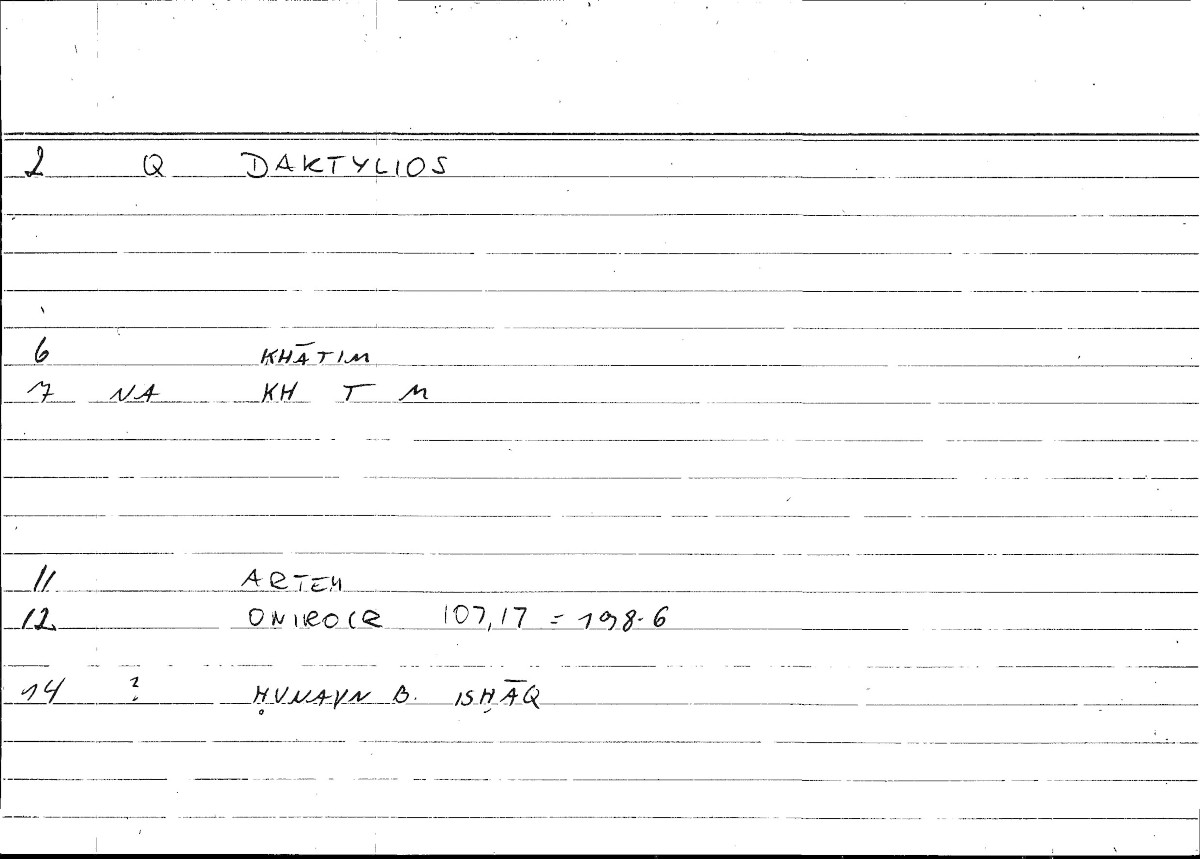 2 Q DAKTYLIOS
6 KHĀTIM
7 NA KH T M
11 ARTEM
12. ONIROCR 107,17 = 198.6
14 ? ḤUNAYN B. ISḤĀQ